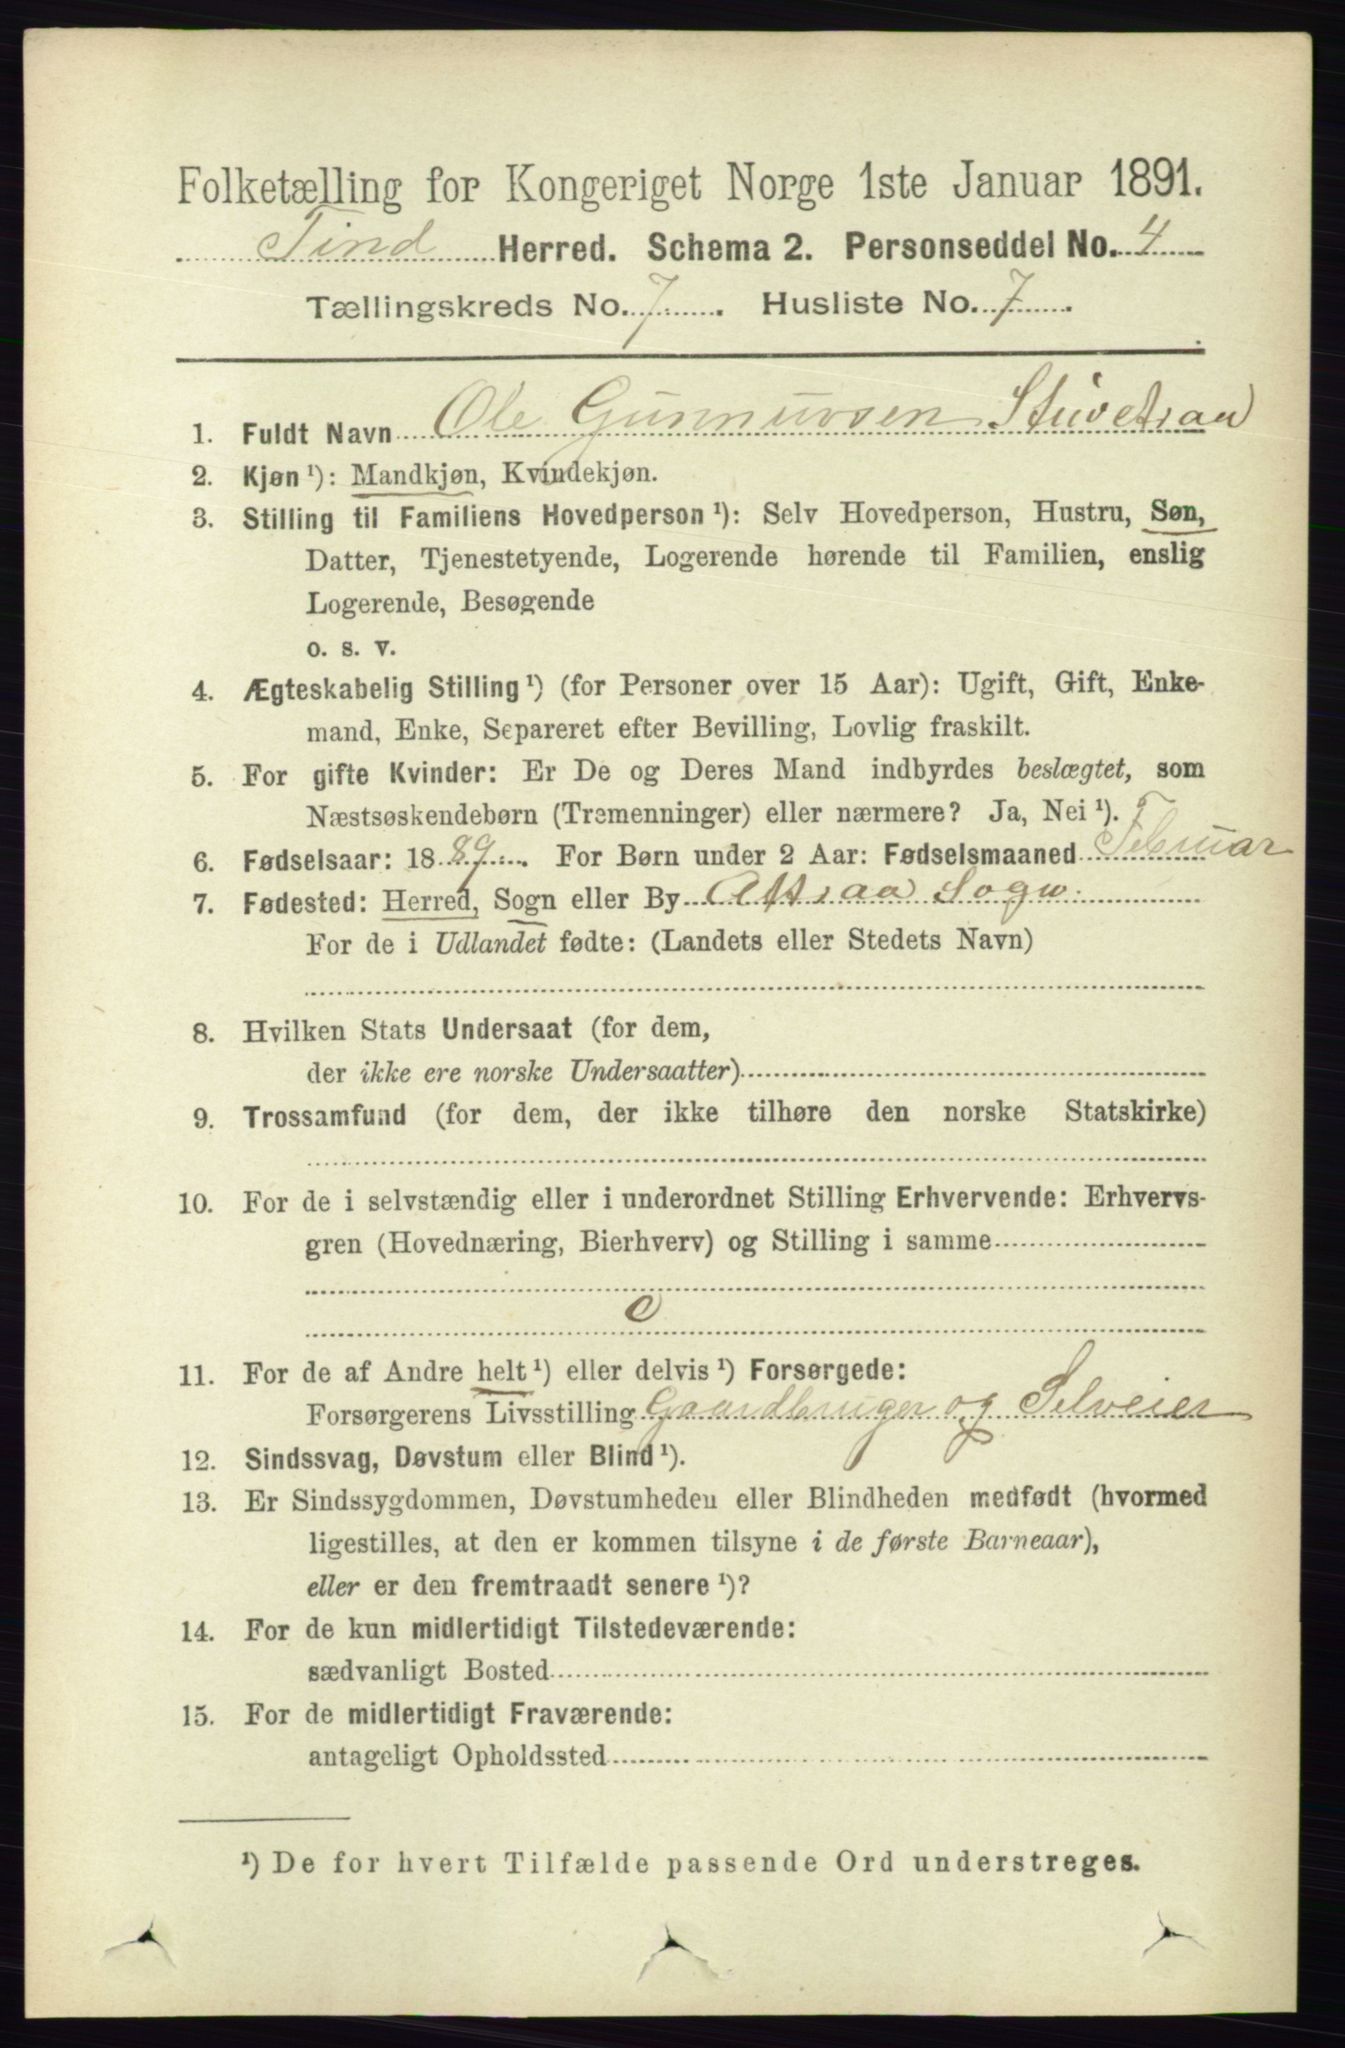 Folketælling for Kongeriget Norge 1ste Januar 1891.
Tind Herred. Schema 2. Personseddel No. 4
Tællingskreds No. 7. Husliste No. 7.
1. Fuldt Navn Ole Gunnursen
2. Kjøn ¹): Mandkjøn, Kvindekjøn.
3. Stilling til Familiens Hovedperson ¹): Selv Hovedperson, Hustru, Søn,
Datter, Tjenestetyende, Logerende hørende til Familien, enslig
Logerende, Besøgende
o. s. v.
4. Ægteskabelig Stilling ¹) (for Personer over 15 Aar): Ugift, Gift, Enke-
mand, Enke, Separeret efter Bevilling, Lovlig fraskilt.
5. For gifte Kvinder: Er De og Deres Mand indbyrdes beslægtet, som
Næstsøskendebørn (Tremenninger) eller nærmere? Ja, Nei ¹).
6. Fødselsaar: 1889. For Børn under 2 Aar: Fødselsmaaned Februar
7. Fødested: Herred, Sogn eller By Attraa Sogn.
For de i Udlandet fødte: (Landets eller Stedets Navn)
8. Hvilken Stats Undersaat (for dem,
der ikke ere norske Undersaatter)
9. Trossamfund (for dem, der ikke tilhøre den norske Statskirke)
10. For de i selvstændig eller i underordnet Stilling Erhvervende: Erhvervs-
gren (Hovednæring, Bierhverv) og Stilling i samme
c
11. For de af Andre helt ¹) eller delvis ¹) Forsørgede:
Forsørgerens Livsstilling Gaardbruger og Selveier
12. Sindssvag, Døvstum eller Blind ¹).
13. Er Sindssygdommen, Døvstumheden eller Blindheden medfødt (hvormed
ligestilles, at den er kommen tilsyne i de første Barneaar),
eller er den fremtraadt senere ¹)?
14. For de kun midlertidigt Tilstedeværende:
sædvanligt Bosted
15. For de midlertidigt Fraværende:
antageligt Opholdssted
¹) De for hvert Tilfælde passende Ord understreges.